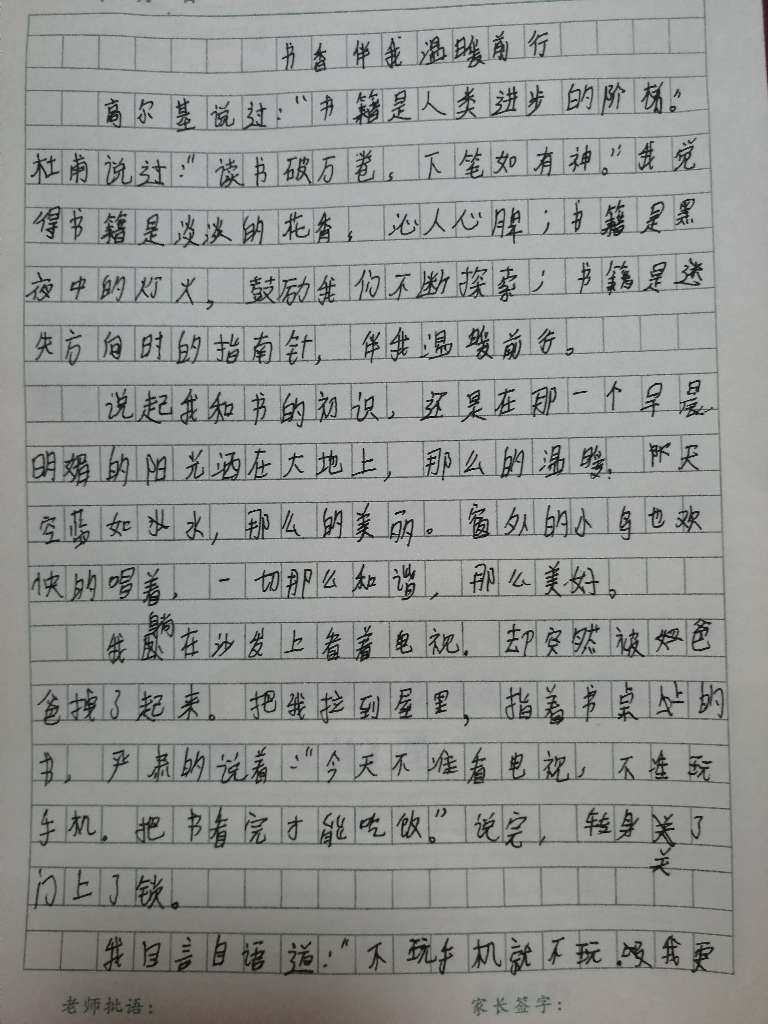 书香伴我温暖前行
高尔基说过：“书籍是人类进步的阶梯。”
杜甫说过：“读书破万卷，下笔如有神。”我觉
得书籍是淡淡的花香，沁人心脾；书籍是黑
夜中的灯火，鼓励我们不断探索；书籍是迷
失方向时的指南针，伴我温暖前行。
说起我和书的初识，还是在那一个早晨
明媚的阳光洒在大地上，那么的温暖．天
空蓝如冰水，那么的美丽。窗外的小鸟也欢
快的唱着，一切那么和谐，那么美好。
我躺在沙发上看着电视，却突然被爸
爸揍了起来。把我拉到屋里，指着书桌上的
书，严肃的说着：“今天不准看电视，不准玩
手机。把书看完才能吃饭。”说完，转身关了
门上了锁。
我自言自语道：“不玩手机就不玩．我更
老师批语：
家长签字：